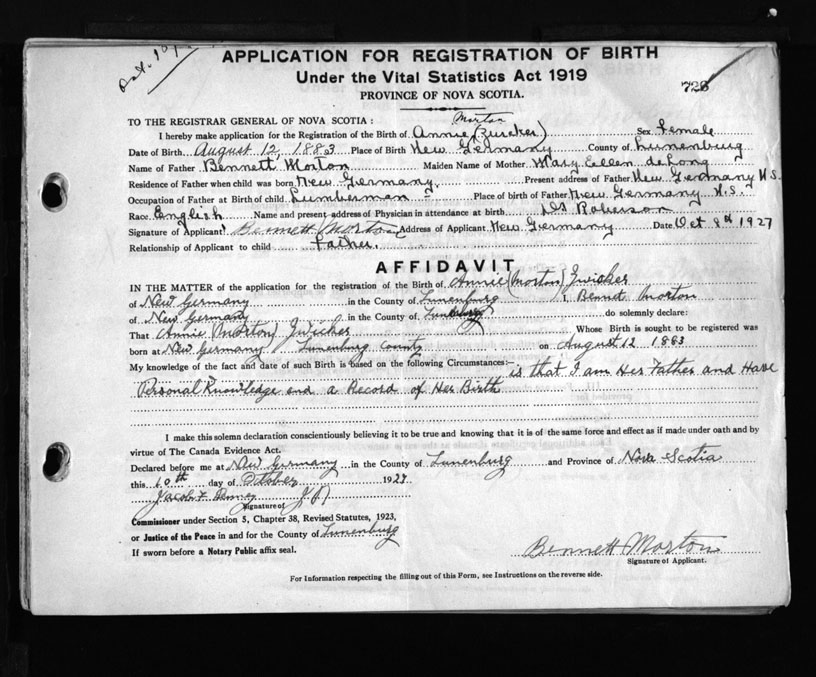 APPLICATION FOR REGISTRATION OF BIRTH
Under the Vital Statistics Act 1919
728
PROVINCE OF NOVA SCOTIA.
TO THE REGISTRAR GENERAL OF NOVA SCOTIA :
Morton
I hereby make application for the Registration of the Birth of Annie (Zwicker) Sex Female
Date of Birth August 12, 1883 Place of Birth New Germany County of Lunenburg
Name of Father Bennett Morton Maiden Name of Mother Mary Ellen deLong
Residence of Father when child was born New Germany. Present address of Father New Germany N.S.
Occupation of Father at Birth of child Lumberman - Place of birth of Father New Germany N.S.
Race English Name and present address of Physician in attendance at birth Dr Roberson
Signature of Applicant Bennett Morton Address of Applicant New Germany Date Oct 8th 1927
Relationship of Applicant to child Father.
AFFIDAVIT
IN THE MATTER of the application for the registration of the Birth of Annie (Morton) Zwicker
of New Germany in the County of Lunenburg I, Bennet Morton
of New Germany in the County of Lunenburg do solemnly declare:
That Annie (Morton) Zwicker Whose Birth is sought to be registered was
born at New Germany Lunenburg County on August 12 1883
My knowledge of the fact and date of such Birth is based on the following Circumstances:- is that I am Her Father and Have
Personal Knowledge and a Record of Her Birth
I make this solemn declaration conscientiously believing it to be true and knowing that it is of the same force and effect as if made under oath and by
virtue of The Canada Evidence Act.
Declared before me at New Germany in the County of Lunenburg and Province of Nova Scotia
this 10th day of October 1927
Jacob F J.P.
Signature of
Commissioner under Section 5, Chapter 38, Revised Statutes, 1923,
or Justice of the Peace in and for the County of Lunenburg
If sworn before a Notary Public affix seal.
Bennett Morton
Signature of Applicant.
For Information respecting the filling out of this Form, see Instructions on the reverse side.